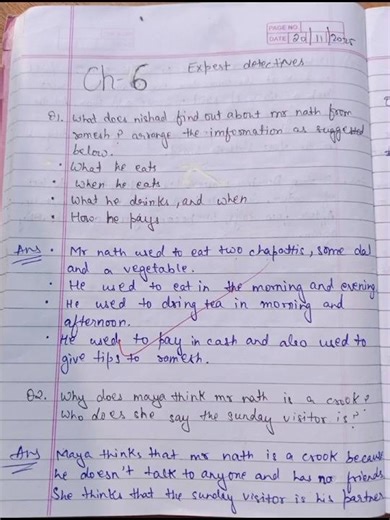 PAGE NO.
DATE 20/11/2025
Ch-6 Expert detectives
Q1. What does nishad find out about mr nath from
somesh? arrange the imformation as suggested
below.
• What he eats
• When he eats
• What he drinks, and when
• How he pays
Ans • Mr nath used to eat two chapattis, some dal
and a vegetable.
• He used to eat in the morning and evening.
• He used to dring tea in morning and
afternoon.
• He used to pay in cash and also used to
give tips to somesh.
Q2. Why does maya think mr nath is a crook?
Who does she say the sunday visitor is?
Ans Maya thinks that mr nath is a crook because
he doesn't talk to anyone and has no friends
She thinks that the sunday visitor is his partner